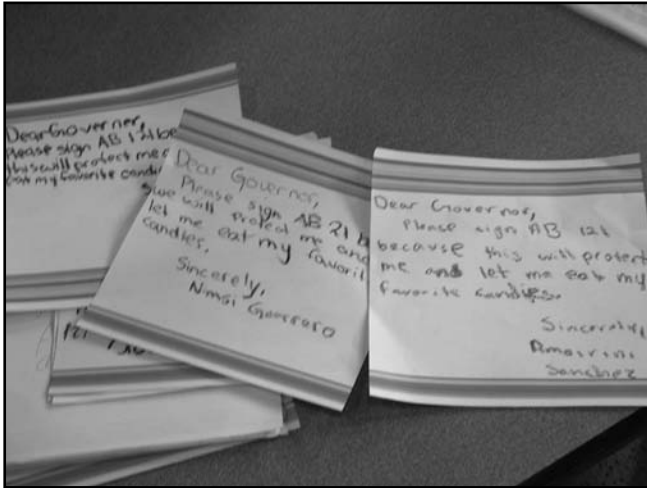 Dear Governer,
Please sign AB 121 be
this will protect me
eat my favorite candi
Dear Governor,
Please sign AB 21 b
swe will protect me and
let me eat my favorit
candies,
Sincerely,
Guerrero
Dear Governor,
Please sign AB 121
because this will protect
me and let me eat my
favorite candies.
Sincerely,
Sanchez